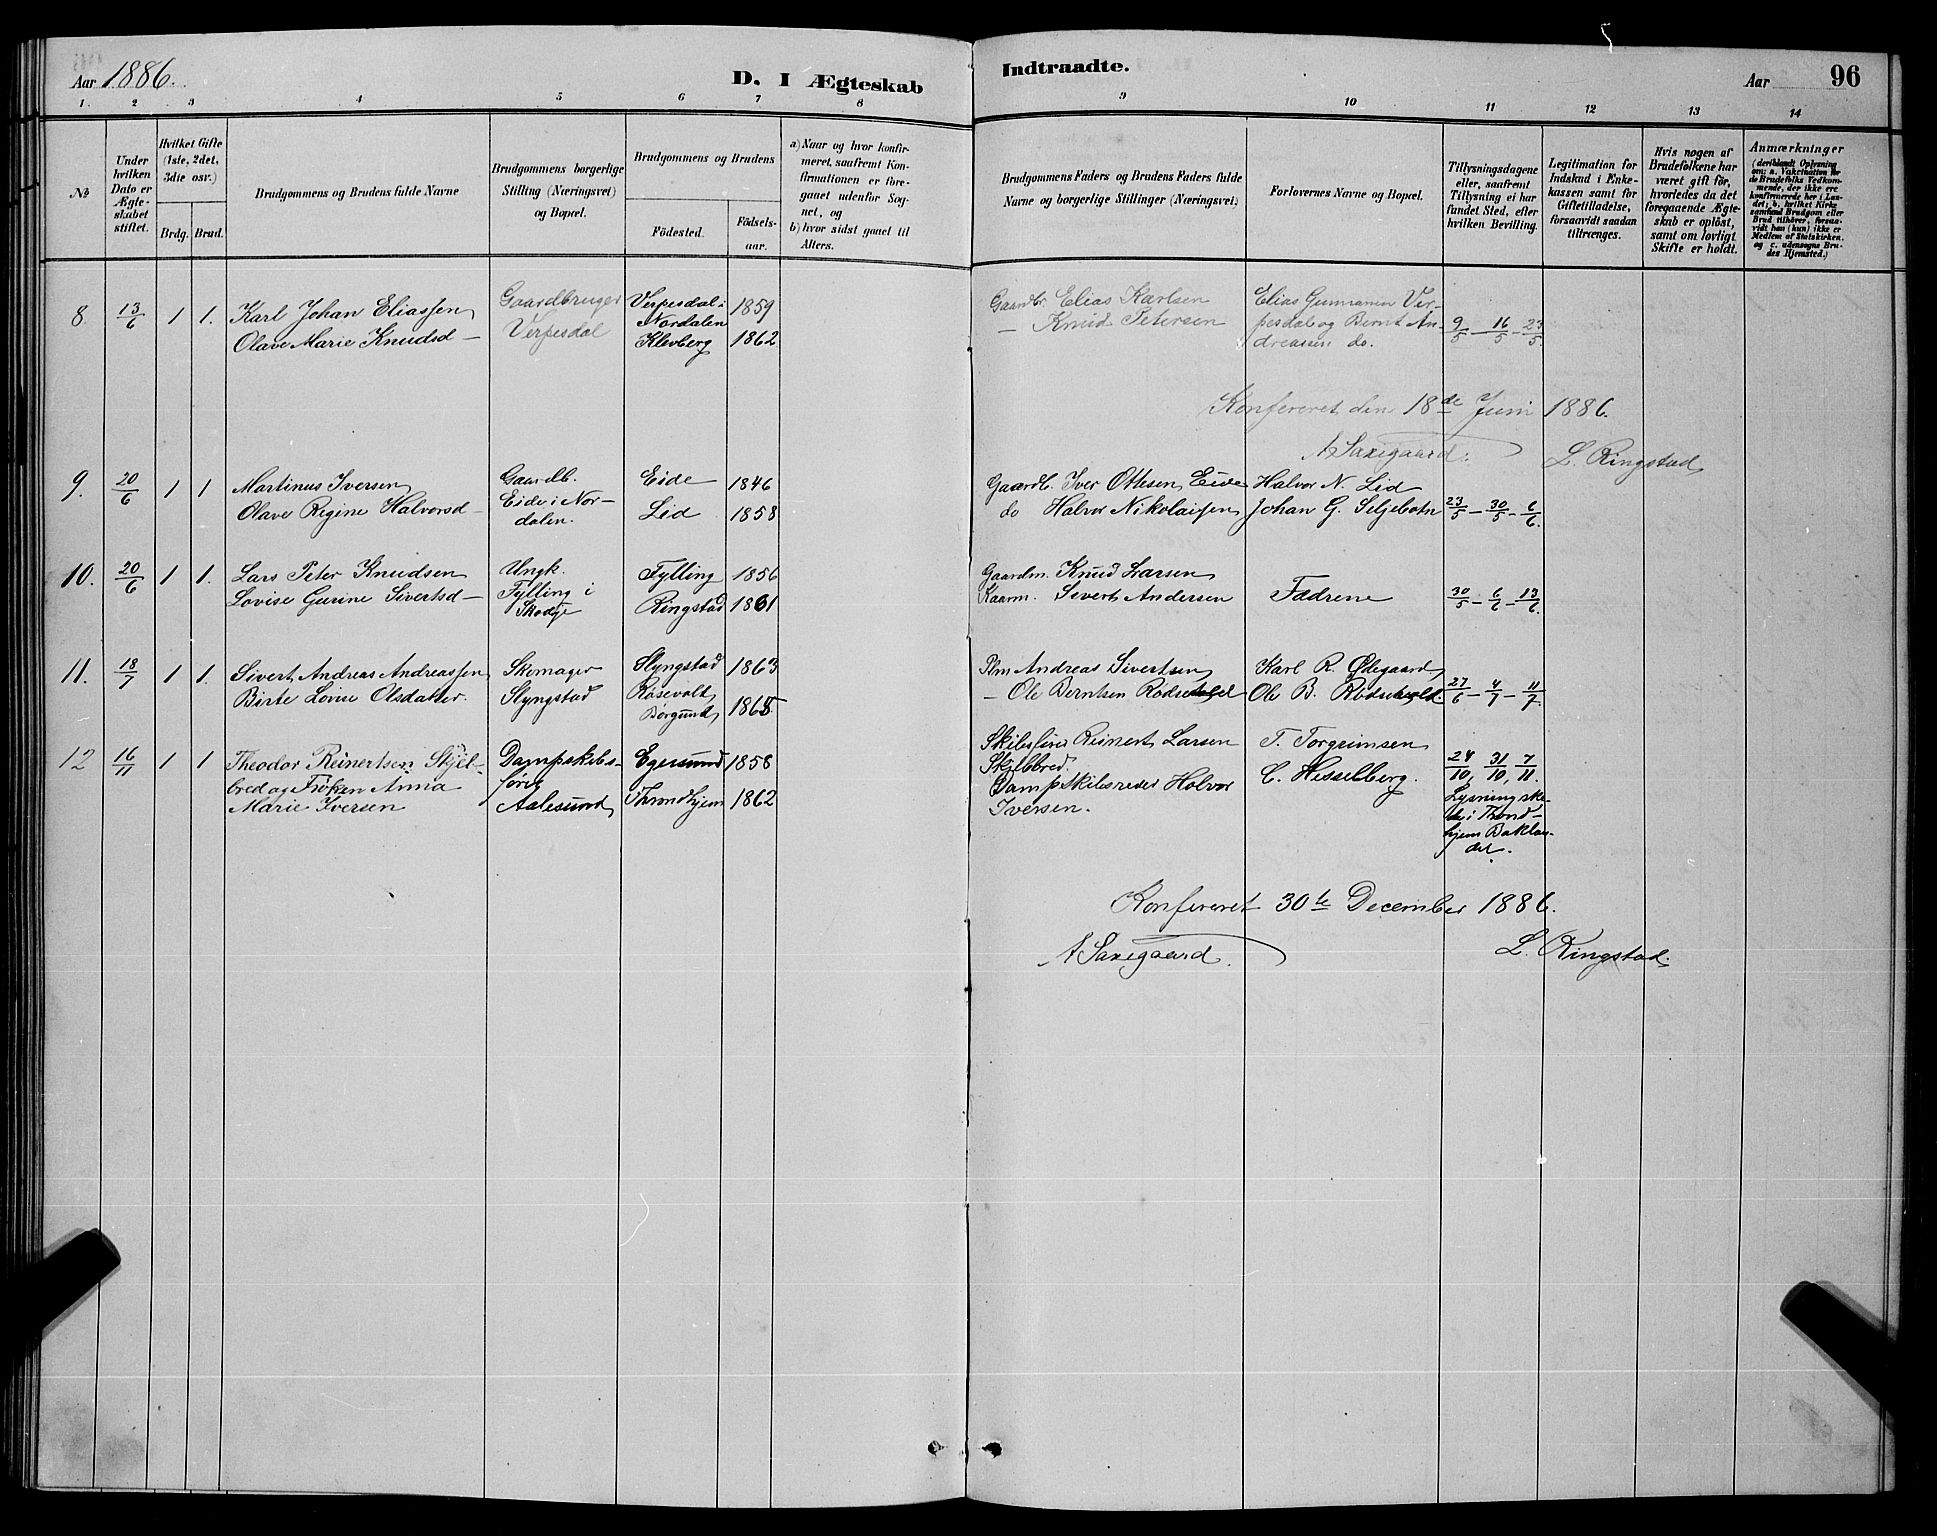 Aar 1886.
D. I Ægteskab
Indtraadte.
Aar 96
1. 2 3 4 5 6 7 8
9 10 11 12 13 14
№
Under hvilken Dato er Ægteskabet stiftet.
Hvilket Gifte (1ste, 2det, 3die osv.)
Brdg. Brud.
Brudgommens og Brudens fulde Navne
Brudgommens borgerlige Stilling (Næringsvei) og Bopæl.
Brudgommens og Brudens
Födested.
Födsels-aar.
a) Naar og hvor konfirmeret, saafremt Konfirmationen er foregaaet udenfor Sognet, og
b) hvor sidst gaaet til Alters.
Brudgommens Faders og Brudens Faders fulde Navne og borgerlige Stillinger (Næringsvei)
Forlovernes Navne og Bopæl.
Tillysningsdagene eller, saafremt Tillysning ei har fundet Sted, efter hvilken Bevilling.
Legitimation for Indskud i Enkekassen samt for Giftetilladelse, forsaavidt saadan tiltrænges.
Hvis nogen af Brudefolkene har været gift för, hvorledes da det foregaaende Ægteskab er oplöst, samt om lovligt Skifte er holdt.
Anmærkninger
(deriblandt Oplysning om: a. Vakcination for de Brudefolks Vedkommende, der ikke ere konfirmerede her i Landet; b. hvilket Kirkesamfund Brudgom eller Brud tilhörer, forsaavidt han (hun) ikke er Medlem af Statskirken, og c. udensogns Brudes Hjemsted.)
8. 13/6 1 1. Karl Johan Eliassen Gaardbruger Verpesdal i 1859 Gaardbr. Elias Karlsen Elias Gunnarsen Ver-
Olave Marie Knudsd— Verpesdal Nordalen — Knud Petersen pesdal og Bernt An- 9/5 – 16/5 – 23/5
Klevberg 1862 dreassen do.
Konfereret den 18de Juni 1886.
A Saxegaard. L. Ringstad
9. 20/6 1 1 Martinus Iversen Gaardb. Eide 1846 Gaardb. Iver Ottesen Eide Halvor N. Lid
Olave Regine Halvorsd— Eide i Nor- Lid 1858 do Halvor Nikolaisen Johan G. Seljebotn 23/5 – 30/5 – 6/6.
dalen.
10. 20/6 1 1. Lars Peter Knudsen Ungk. Fylling 1856 Gaardm. Knud Larsen
Lovise Gurine Sivertsd— Fylling i Ringstad 1861 Kaarm. Sivert Andersen Fædrene 30/5 – 6/6 – 13/6.
Skodje
11. 18/7 1 1. Sivert Andreas Andreassen Skomager Slyngstad 1863 Plm Andreas Sivertsen Karl R. Ødegaard
Birte Lovise Olsdatter. Slyngstad Røsevolt — Ole Berntsen Ole B. 27/6 – 4/7 – 11/7.
Borgund
12 16/11 1 1 Theodor Reinertsen Skjel- Dampskibs- Egersund 1858 Skibsfører Reinert Larsen T. Torgrimsen
bred og Frøken Anna fører Skjelbred. 24/10, 31/10, 7/11.
Marie Iversen Aalesund Throndhjem 1862 Dampskibsreder Halvor C. Hesselberg.
Iversen.
Lysning ske-
de i Trond-
hjem Baklan-
det.
Konfereret 30te December 1886.
A Saxegaard. L. Ringstad.